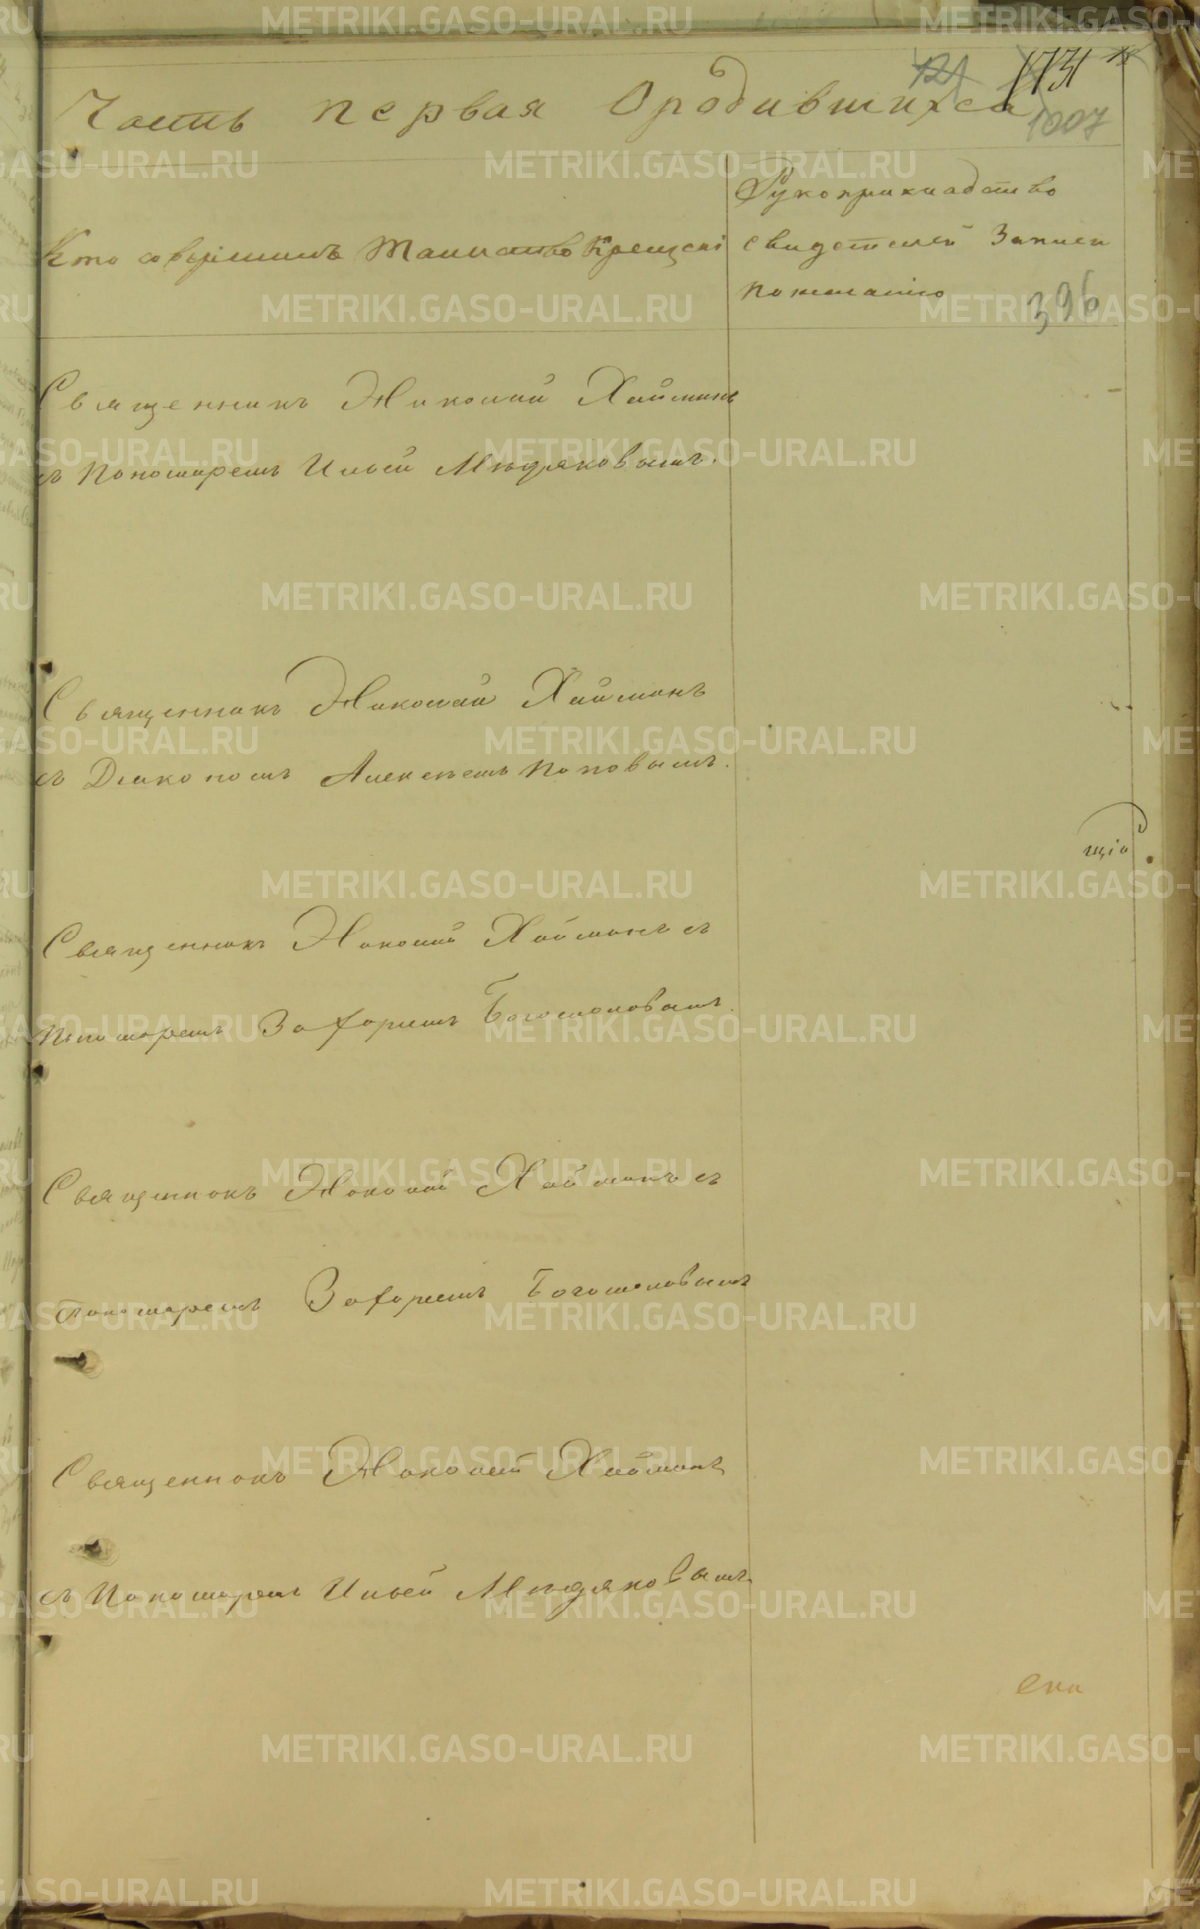 Часть первая О родившихся
1731
1007
Кто совершилъ Таинство Крещені
Рукоприкладство
свидетелей записи
по желанію
396
Священникъ Николай Хайминъ
съ Пономаремъ Ильей Мѣдяковымъ.
Священникъ Николай Хайминъ
съ Діакономъ Алексеемъ Поповымъ.
щіа
Священникъ Николай Хайминъ съ
Пономаремъ Захаріемъ Богомоловымъ.
Священникъ Николай Хайминъ съ
Пономаремъ Захаріемъ Богомоловымъ
Священникъ Николай Хайминъ
съ Пономаремъ Ильей Мѣдяковымъ.
METRIKI.GASO-URAL.RU